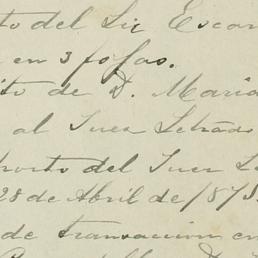 to del Lic Escan
en 3 fojas.
ito de D. Maria
al Juez Letrado
horto del Juez Le
28 de Abril de 1875.
de transaccion en